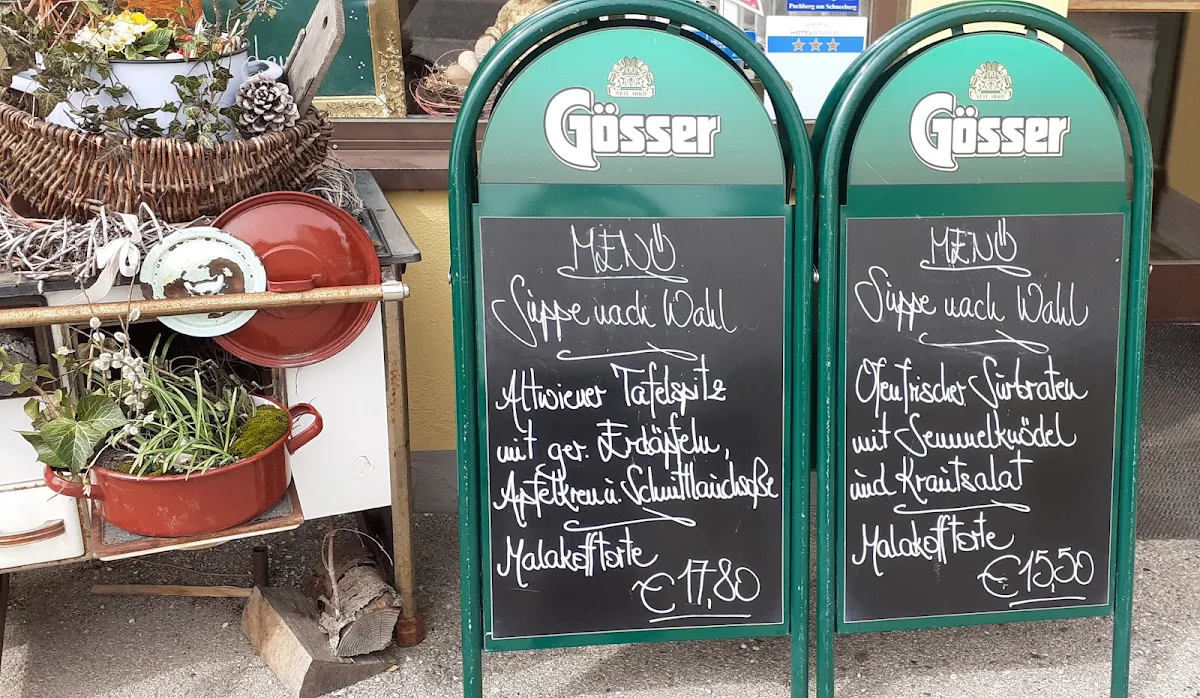 Puchberg am Schneeberg
HOTELSTARS
SEIT 1860
Gösser
MENÜ
Suppe nach Wahl
Altwiener Tafelspitz
mit ger. Erdäpfeln,
Apfelkren u. Schnittlauchsoße
Malakofftorte
€ 17,80
SEIT 1860
Gösser
MENÜ
Suppe nach Wahl
Ofenfrischer Surbraten
mit Semmelknödel
und Krautsalat
Malakofftorte
€ 15,50